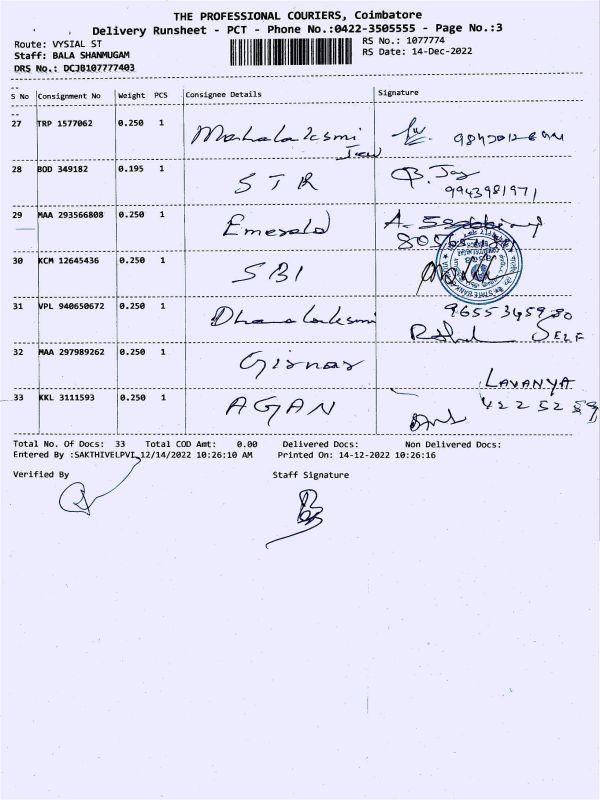 THE PROFESSIONAL COURIERS, Coimbatore
Delivery Runsheet - PCT - Phone No.:0422-3505555 - Page No.:3
Route: VYSIAL ST
RS No.: 1077774
Staff: BALA SHANMUGAM
RS Date: 14-Dec-2022
DRS No.: DCJB107777403
S No Consignment No Weight PCS Consignee Details Signature
27 TRP 1577062 0.250 1 Mahalakesmi
28 BOD 349182 0.195 1 STR B. Jay
9943981971
29 MAA 293566808 0.250 1 Emerald
30 KCM 12645436 0.250 1 SBI
31 VPL 940650672 0.250 1 Dhanalakesmi
SELF
32 MAA 297989262 0.250 1 Girnar
LAVANYA
33 KKL 3111593 0.250 1 AGAN 4225259
Total No. Of Docs: 33 Total COD Amt: 0.00 Delivered Docs: Non Delivered Docs:
Entered By :SAKTHIVELPVI 12/14/2022 10:26:10 AM Printed On: 14-12-2022 10:26:16
Verified By Staff Signature